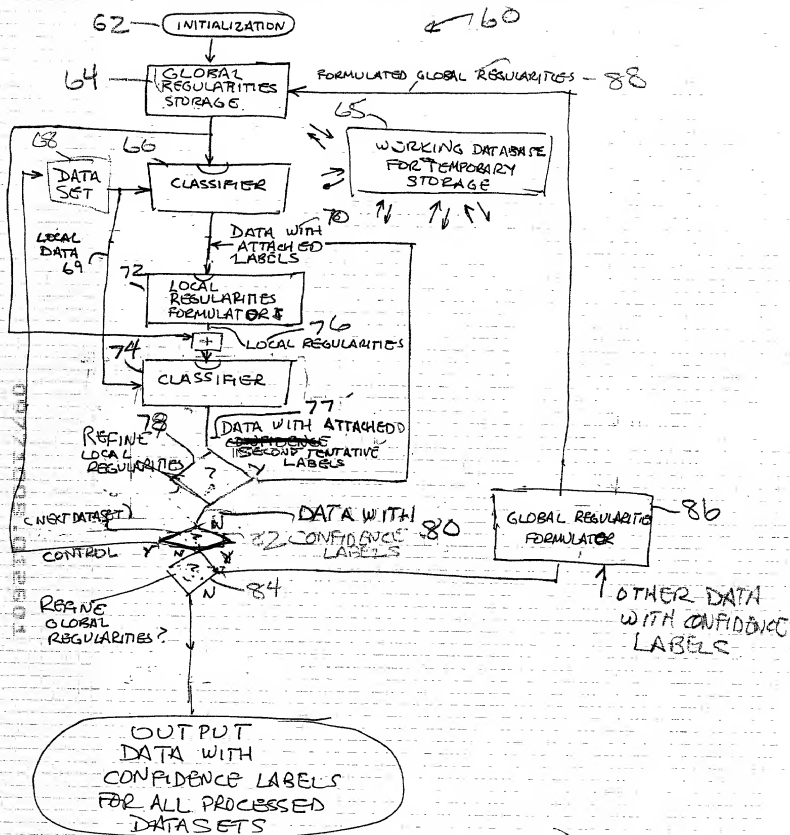 62
INITIALIZATION
60
64
GLOBAL
REGULARITIES
STORAGE
FORMULATED GLOBAL REGULARITIES - 88
65
WORKING DATABASE
FOR TEMPORARY
STORAGE
68
DATA
SET
66
CLASSIFIER
70
DATA WITH
ATTACHED
LABELS
LOCAL
DATA
69
72
LOCAL
REGULARITIES
FORMULATOR
76
+
LOCAL REGULARITIES
74
CLASSIFIER
77
DATA WITH ATTACHED
CONFIDENCE
SECOND TENTATIVE
LABELS
78
REFINE
LOCAL
REGULARITIES
?
Y
N
(NEXT DATASET)
CONTROL
Y
N
82
DATA WITH
CONFIDENCE 80
LABELS
?
84
N
REFINE
GLOBAL
REGULARITIES?
GLOBAL REGULARITIE
FORMULATOR
86
OTHER DATA
WITH CONFIDENCE
LABELS
OUTPUT
DATA WITH
CONFIDENCE LABELS
FOR ALL PROCESSED
DATASETS